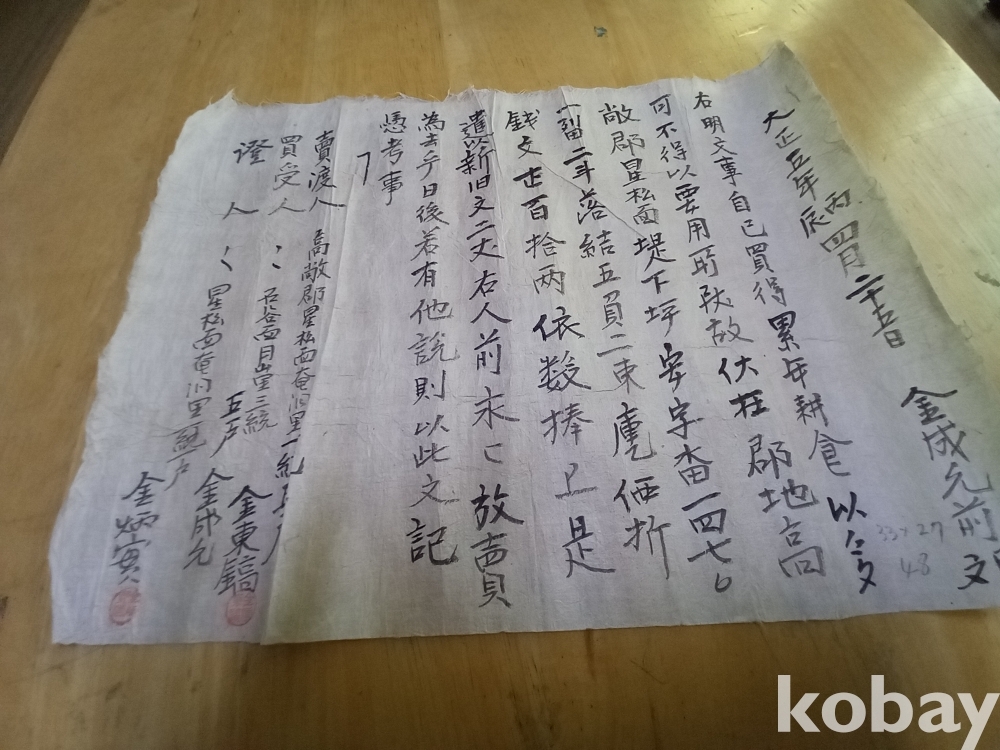 大正五年丙辰四月二十五日 金成允前 文
右明文事自已買得累年耕食以
可不得以要用所致故伏在郡地高
敞郡星松面堤下坪 字畓一四七
二斗落結五負二束 価折
錢文 百拾兩依数捧上是
遣以新旧文二丈右人前永〻放賣
為去乎日後若有他說則以此文記
憑考事
賣渡人 高敞郡星松面 里一統 戶 金東鎬
買受人 〻 石谷面月山里三統五戶 金成允
證人 〻 星松面 里 統 戶 金炳寅
33×27
48
kobay